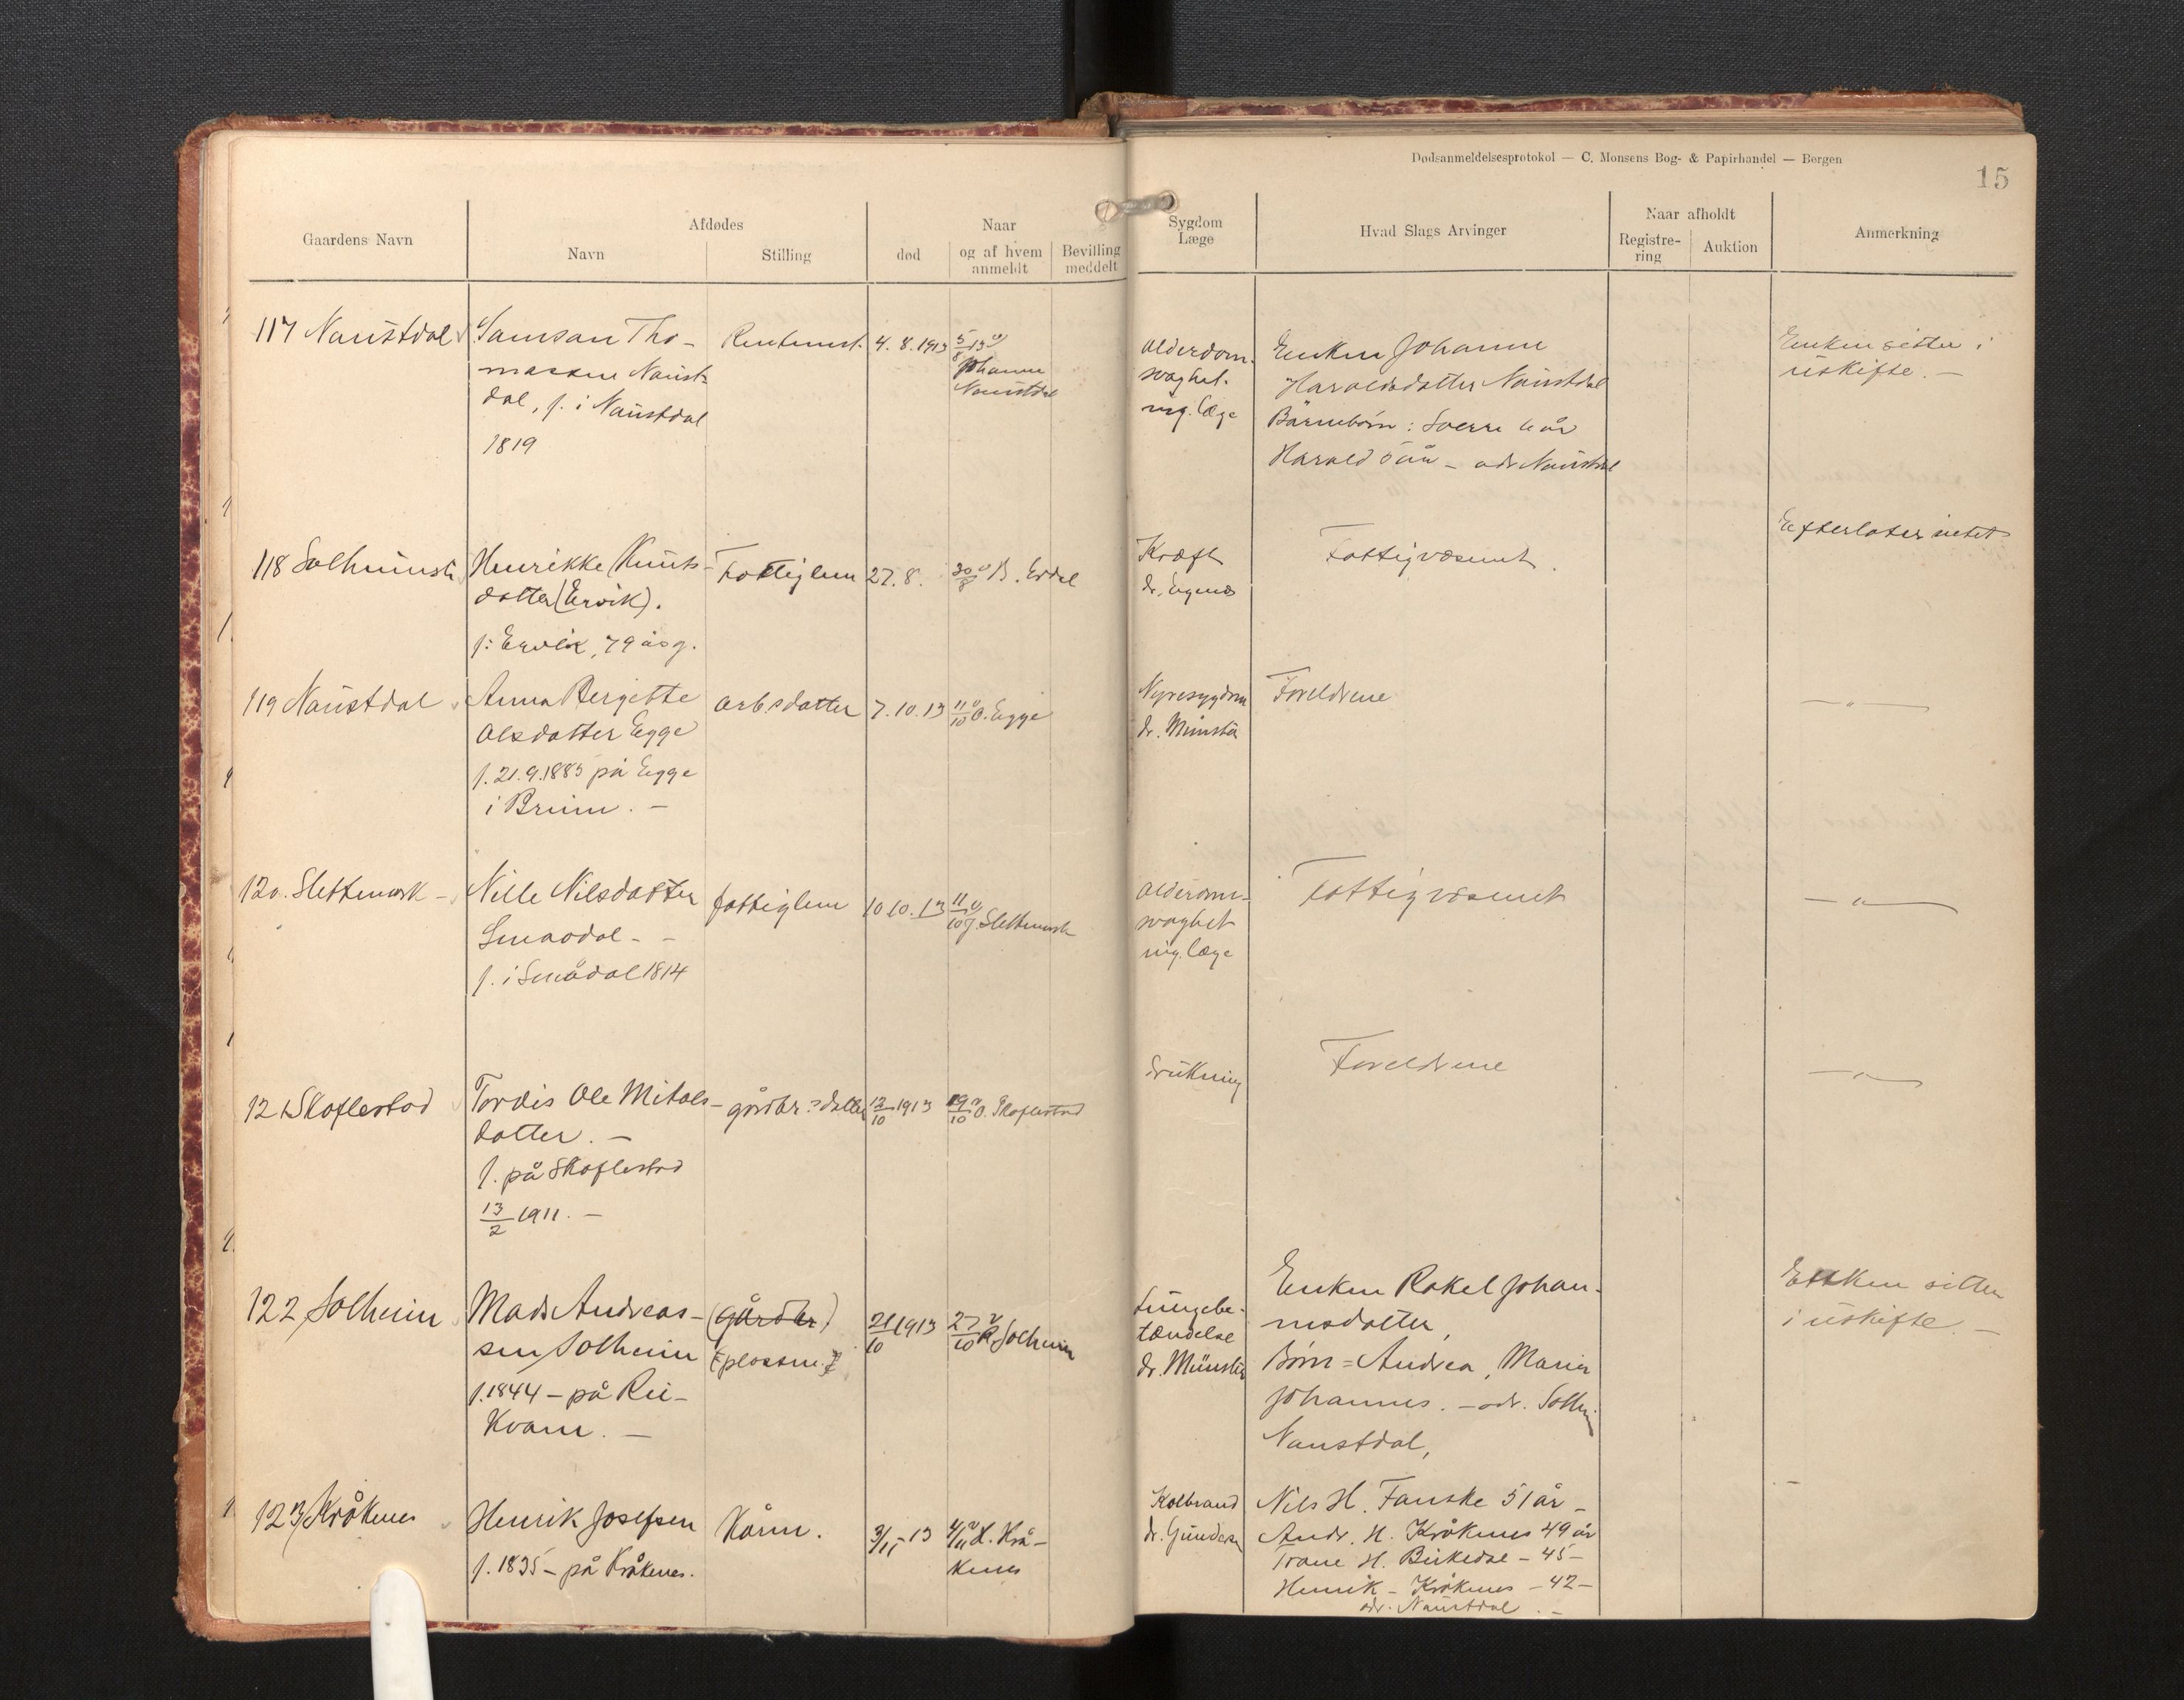 Dødsanmeldelsesprotokol — C. Monsens Bog- & Papirhandel — Bergen
15
Gaardens Navn
Afdødes
Navn
Stilling
Naar
død
og af hvem anmeldt
Bevilling meddelt
Sygdom
Læge
Hvad Slags Arvinger
Naar afholdt
Registre-
ring
Auktion
Anmerkning
117 Naustdal
Samson Tho-
massen Naust-
dal, f. i Naustdal
1819
Rentenist.
4.8.1913
5/8 13 v
Johanne
Naustdal
Alderdom-
svaghet.
ing. læge
Enken Johanne
Haraldsdatter Naustdal
Barnebørn: Sverre 6 år
Harald 5 år – adr Naustdal
Enken sitter i
uskifte. –
118
Henrikke Knuts-
datter (Ervik).
f: Ervik, 79 år g.
Fattiglem
27.8.
30/8 v B. Erdal
Kræft
dr.
Fattigvæsenet.
Efterlater intet
119 Naustdal
Anna Bergitte
Olsdatter Egge
f. 21.9.1885 på Egge
i Breim. –
arb.sdatter
7.10.13
11/10 v O. Egge
Nyresygdom
dr. Münster
Foreldrene
– " –
120. Slettemark –
Nille Nilsdatter
Smaadal – –
f. i Smådal 1814
fattiglem
10 10. 13
11/10 v J. Slettemark
Alderdom-
svaghet
ing. læge
Fattigvæsenet
– " –
121 Skaflestad
Tordis Ole Mikals-
datter. –
f. på Skaflestad
13/2 1911. –
gårdbr.s datter
12/10 1913
19/10 v O. Skaflestad
Drukning
Foreldrene
– " –
122 Solheim
Mads Andreas-
sen Solheim
f. 1844 – på Rei-
Kvam. –
(gårdbr)
(plassm.)
21/10 1913
27/10 v R. Solheim
Lungebe-
tændelse
dr. Münster
Enken Rakel Johan-
nesdatter,
Børn = Andrea, Marie
Johannes. – adr. Solheim
Naustdal,
Enken sitter
i uskifte –
123 Kråkenes
Henrik Josefsen
f. 1835 – på Kråkenes.
Kårm.
3/11 – 13
4/11 v H. Krå-
kenes
Kolbrand
dr. Gundersen
Nils H. Fauske 51 år –
Andr. H. Kråkenes 49 år
Trane H. Birkedal – 45 –
Henrik – Kråkenes – 42 –
adr. Naustdal. –
–